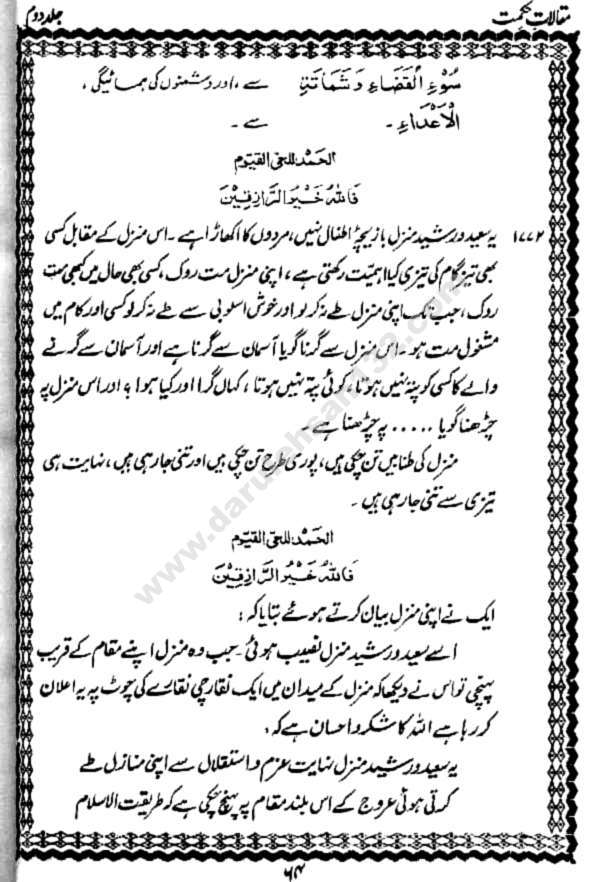 مقالاتِ حکمت جلد دوم
سُوْءِ الْقَضَاءِ وَ شَمَاتَۃِ سے ، اور دشمنوں کی ہمسائیگی ،
الْاَعْدَاءِ ۔ سے ۔
الحمد للحی القیوم
فَاللہُ خَیْرُ الرَّازِقِیْنَ
۱۷۷۲ یہ سعید ورشید منزل بازیچۂ اطفال نہیں، مردوں کا اکھاڑا ہے ۔ اس منزل کے مقابل کسی
بھی تیز گام کی تیزی کیا اہمیت رکھتی ہے ، اپنی منزل مت روک، کسی بھی حال میں کبھی مت
روک، جب تک اپنی منزل طے نہ کر لو اور خوش اسلوبی سے طے نہ کر لو کسی اور کام میں
مشغول مت ہو ۔ اس منزل سے گرنا گویا آسمان سے گرنا ہے اور آسمان سے گرنے
والے کا کسی کو پتہ نہیں ہوتا ، کوئی پتہ نہیں ہوتا ، کہاں گرا اور کیا ہوا ؟ اور اس منزل پہ
چڑھنا گویا ..... پہ چڑھنا ہے ۔
منزل کی طنابیں تن چکی ہیں، پوری طرح تن چکی ہیں اور تنی جا رہی ہیں، نہایت ہی
تیزی سے تنی جا رہی ہیں ۔
الحمد للحی القیوم
فَاللہُ خَیْرُ الرَّازِقِیْنَ
ایک نے اپنی منزل بیان کرتے ہوئے بتایا کہ :
اسے سعید ورشید منزل نصیب ہوئی ۔ جب وہ منزل اپنے مقام کے قریب
پہنچی تو اس نے دیکھا کہ منزل کے میدان میں ایک نقارچی نقارے کی چوٹ پہ یہ اعلان
کر رہا ہے اللہ کا شکر و احسان ہے کہ :
یہ سعید ورشید منزل نہایت عزم و استقلال سے اپنی منازل طے
کرتی ہوئی عروج کے اس بلند مقام پہ پہنچ چکی ہے کہ طریقت الاسلام
۶۴
www.darulehsan139.com